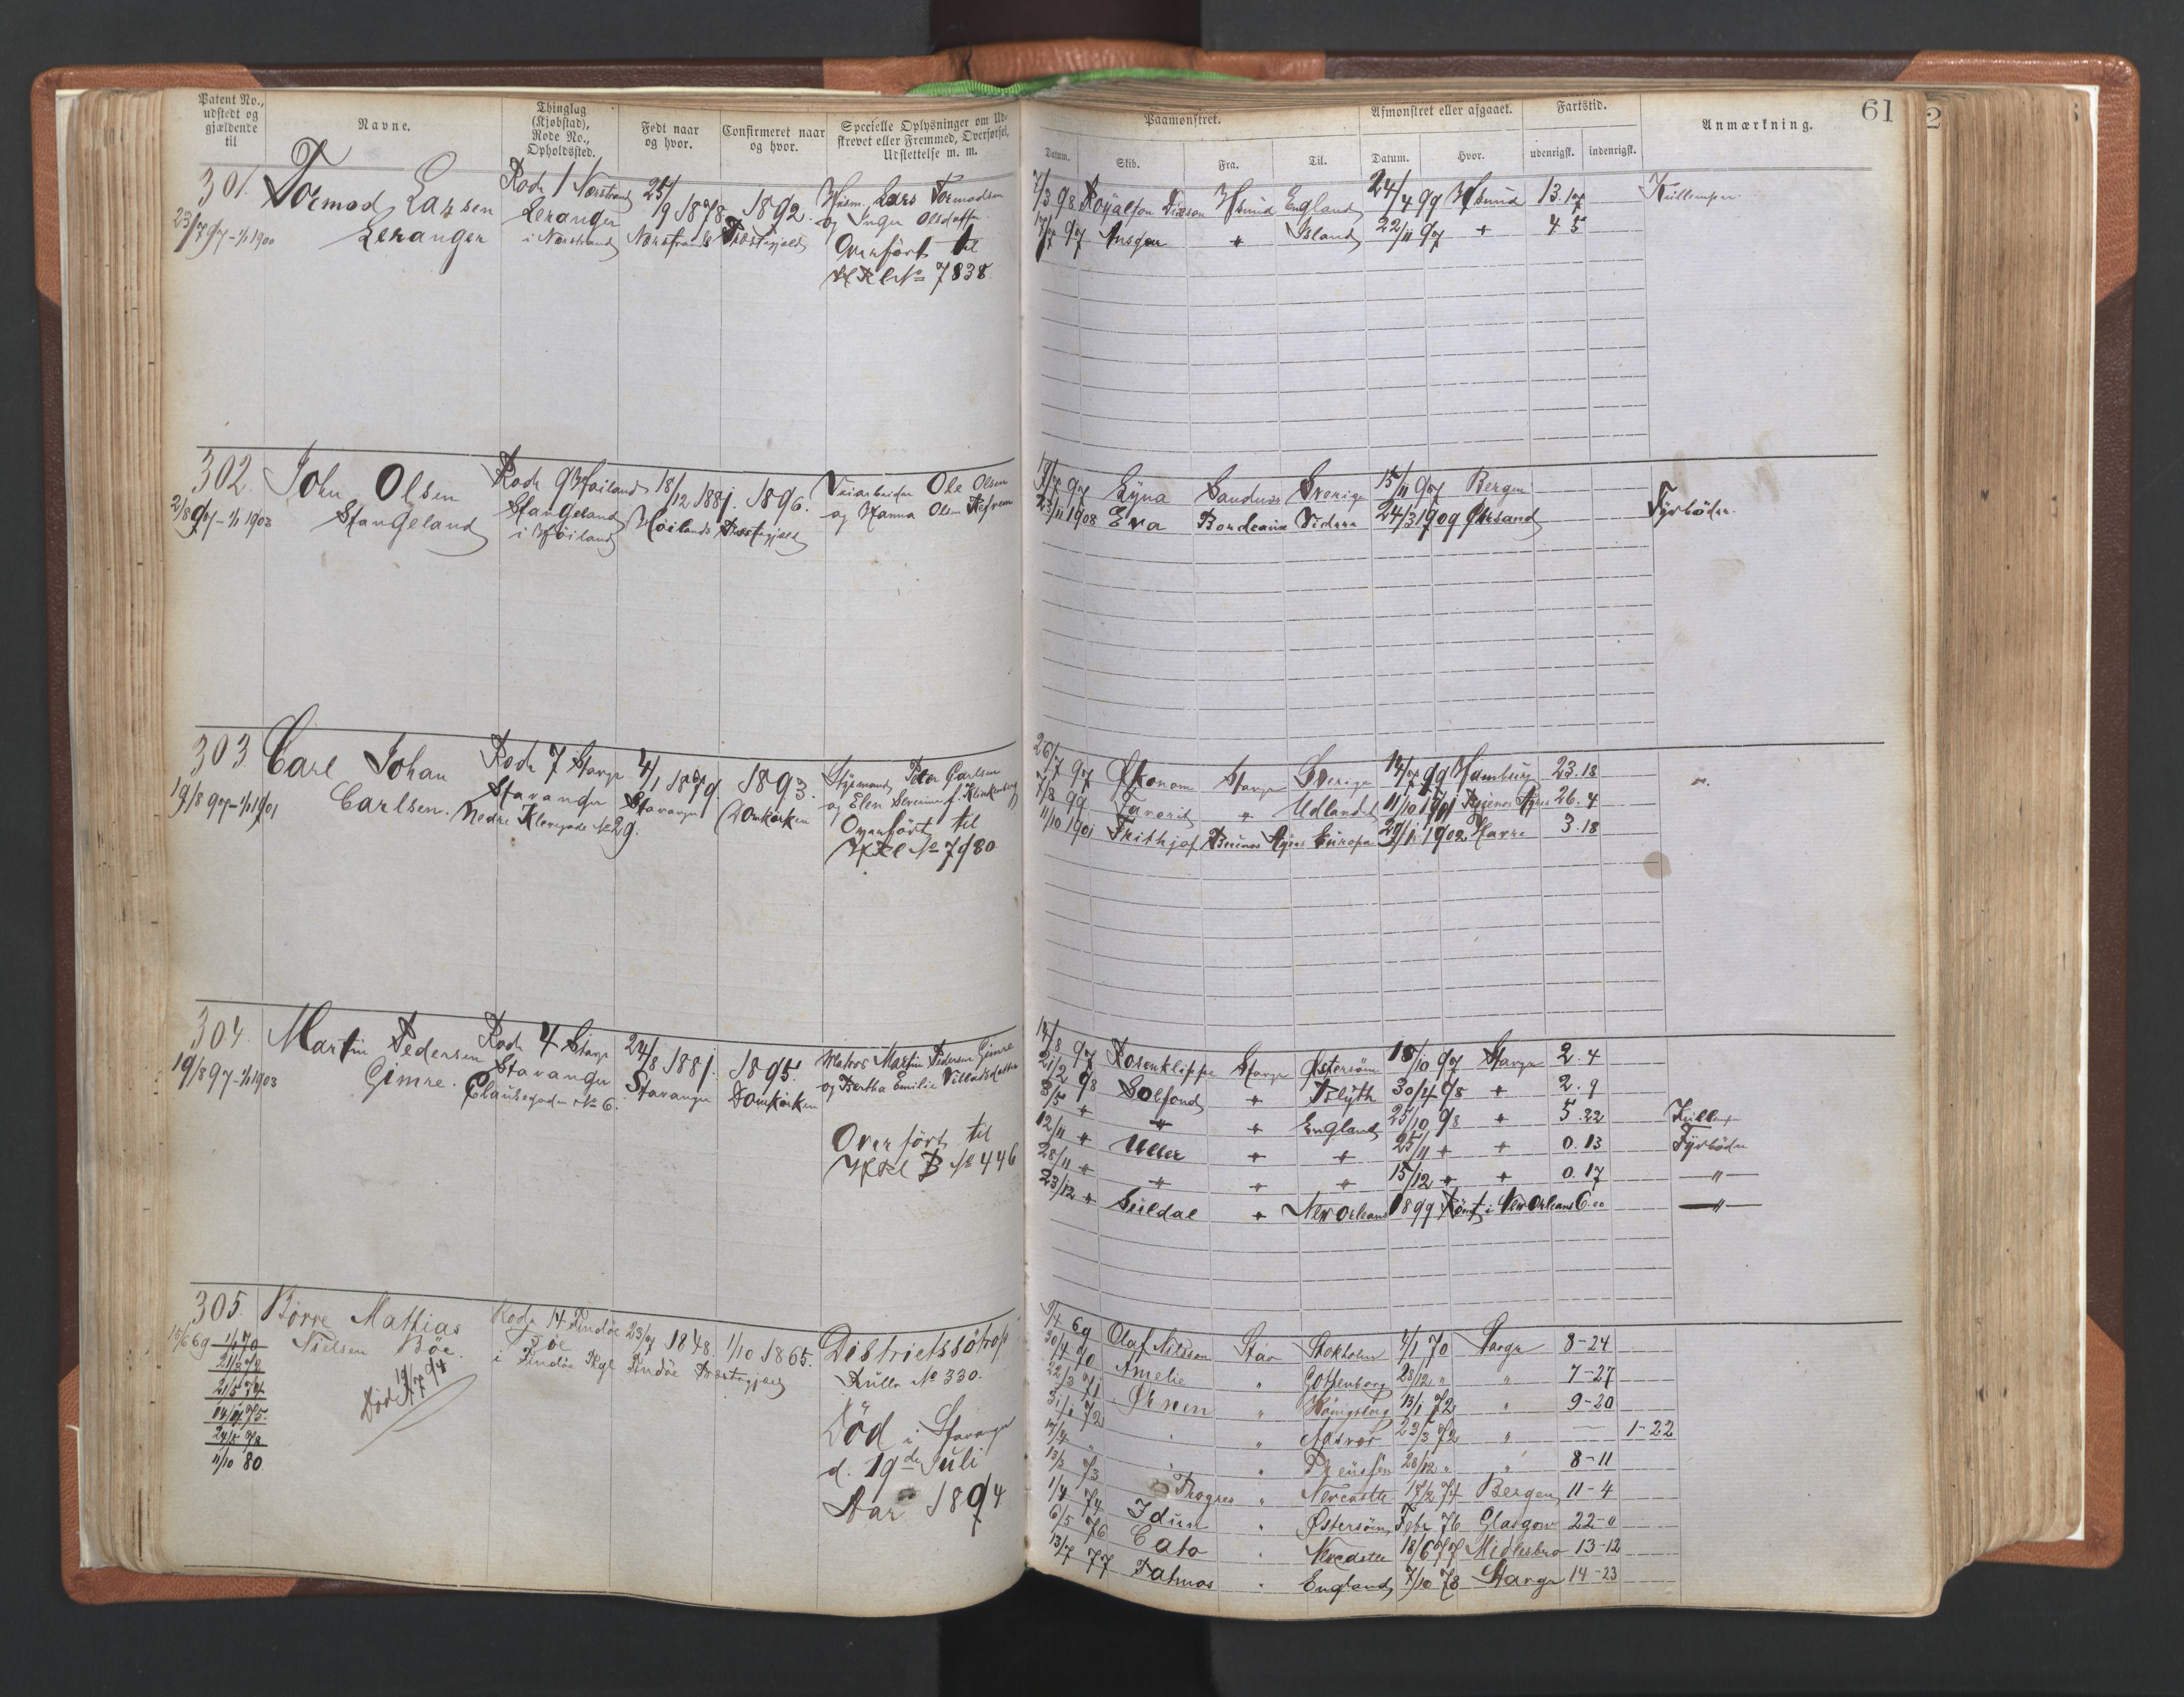 Patent No., udstedt og gjældende til
Navne.
Thinglag (Kjøbstad), Rode No., Opholdssted.
Født naar og hvor.
Confirmeret naar og hvor.
Specielle Oplysninger om Udskrevet eller Fremmed, Overførsel, Udslettelse m. m.
Paamønstret.
Afmønstret eller afgaaet.
Fartstid.
Anmærkning.
61
Datum. Skib. Fra. Til. Datum. Hvor. udenrigsk. indenrigsk.
301. Tormod Larsen Rode 1 Nærstrand 25/9 1878. 1892. Husm. Lars Tormodsen
23/7 97 - 1/1 1900 Leranger Leranger i Nærstrand Nærstrands Præstegjeld og Inger Olsdatter
Overført til
HRl No 7838.
7/3 98 Royalson Dixson Hsund England 24/4 99 Hsund 13. 17 Kullemper
17/7 97 Ansgar " Island 22/11 97 " 4 5
302. John Olsen Rode 9 Høiland 18/12 1881. 1896. Veiarbeider Ole Olsen
2/8 97 - 1/1 1903 Stangeland Stangeland i Høiland Høilands Præstegjeld og Hanna Olsen
97 Lyna Sandnes Sverige 15/11 97 Bergen
23/11 1908 Eva Bordeaux 24/3 1909 Chrsand Fyrbøder.
303. Carl Johan Rode 7 Stavgr 4/1 1879. 1893. Styrmand Peter Carlsen
19/8 97 - 1/1 1901 Carlsen. Stavanger Stavanger Domkirken og Elen Severine f. Klinkenberg
Nedre Klevegade No 29.
Overført til
HRl No 7980
26/7 97 Økonom Stavgr Sverige 14/7 99 Hamburg 23. 18
7/8 99 Favorit " Udlandet 11/10 1901 Buenos Ayres 26. 4
11/10 1901 Frithjof Buenos Ayres Europa 29/1 1902 Havre 3. 18
304. Martin Pedersen Rode 4 Stavgr 24/8 1881. 1895. Matros Martin Pedersen Gimre
19/8 97 - 1/1 1903 Gimre. Stavanger Stavanger Domkirken og Bertha Emilie Villadsdatter
Clausegaden No 6.
Overført til
HRl B No 446
14/8 97 Rosenklippe Stavgr Østersøen 18/10 97 Stavgr 2. 4
21/2 98 Solfond " Blyth 30/4 98 " 2. 9
8/5 " " " England 25/10 98 " 5. 22 Kullemp
12/11 " Uller " " 25/11 " " 0. 13 Fyrbøder
28/11 " " " " 15/12 " " 0. 17 — " —
23/12 " Suldal " New Orleans 1899 Rømt i New Orleans 6. 00 — " —
305 Børre Mathias Rode 14 Findøe 23/7 1848. 1/10 1865. Districtssötrop
15/6 69 1/1 70 Nielsen Böe. Böe i Findöe Sgl Findöe Præstegjeld Rulle No 330.
21/3 72
21/5 74
14/4 75
24/5 78
11/10 80
Död 19/7 94
Död i Stavanger
d. 19de Juli
Aar 1894
9/4 69 Olaf Nilsson Stav Stokholm 4/1 70 Stavgr 8-24
30/4 70 Amelie " Gottenborg 28/12 " " 7-27
22/3 71 Ørnen " Königsberg 13/1 72 " 9-20
31/1 72 " " 23/3 72 " 1-22
17/4 " " " Preussen 28/12 " " 8-11
13/3 73 Progres " Newcastle 74 Bergen 11-4
1/4 74 Idun " Østersøen Febr 76 Glasgow 22-"
6/5 76 Cato " Newcastle 18/6 77 Midlesbro 13-12
13/7 77 Patmos " England 7/10 78 Stavgr 14-23